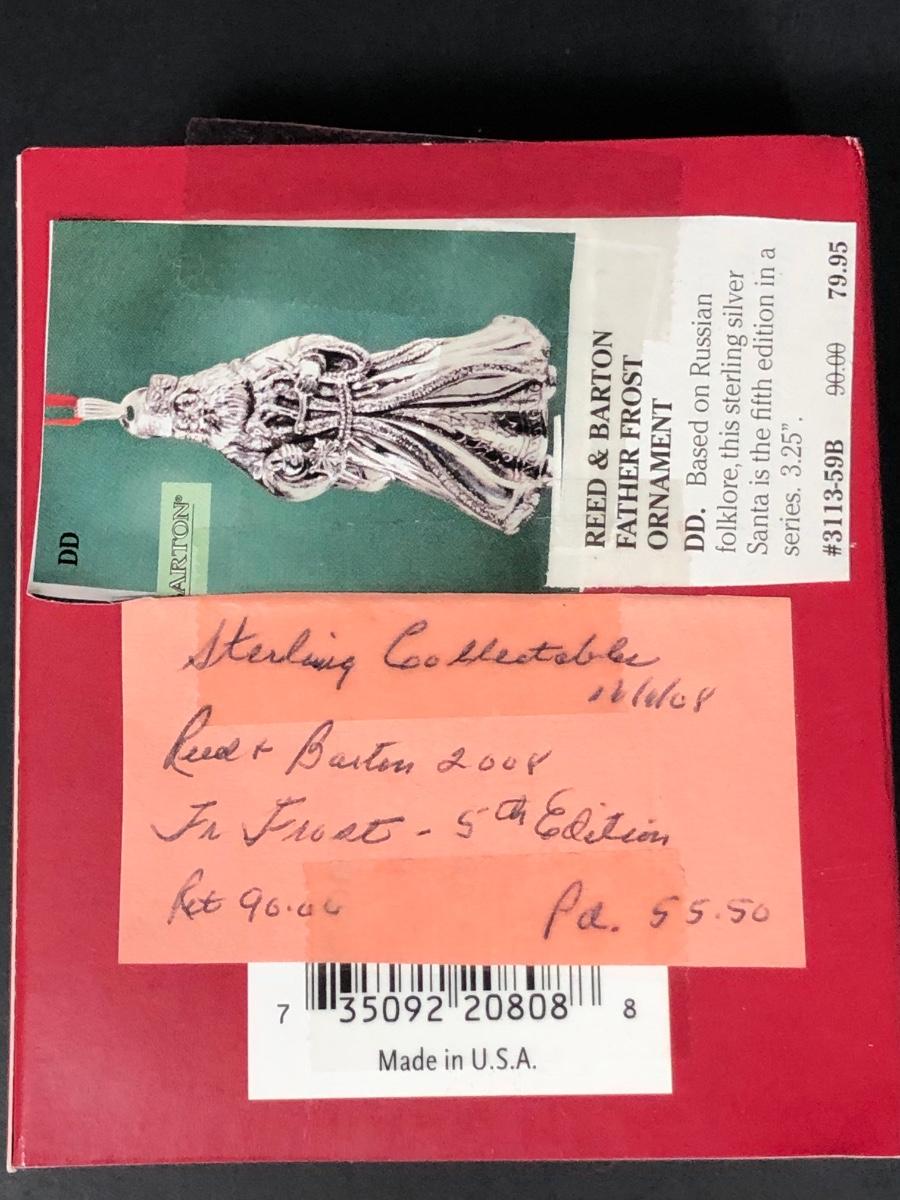 DD
ARTON®
REED & BARTON
FATHER FROST
ORNAMENT
DD. Based on Russian
folklore, this sterling silver
Santa is the fifth edition in a
series. 3.25”.
#3113-59B 90.00 79.95
Sterling Collectables
Reed + Barton 2008
Fr Frost - 5th Edition
Ret 90.00 Pd. 55.50
7 35092 20808 8
Made in U.S.A.